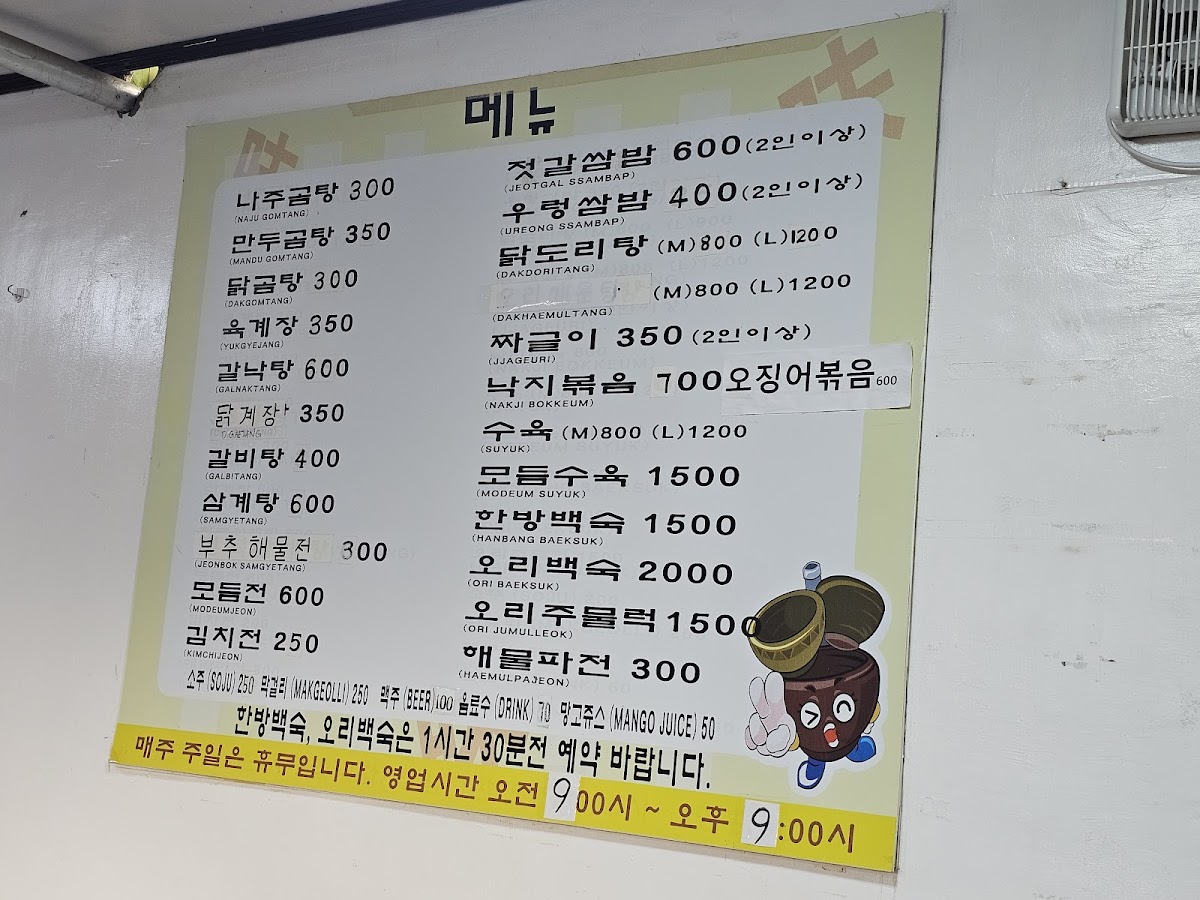 메뉴
나주곰탕 300
(NAJU GOMTANG)
만두곰탕 350
(MANDU GOMTANG)
닭곰탕 300
(DAKGOMTANG)
육계장 350
(YUKGYEJANG)
갈낙탕 600
(GALNAKTANG)
닭계장 350
갈비탕 400
(GALBITANG)
삼계탕 600
(SAMGYETANG)
부추해물전 300
(JEONBOK SAMGYETANG)
모듬전 600
(MODEUMJEON)
김치전 250
(KIMCHIJEON)
젓갈쌈밥 600(2인이상)
(JEOTGAL SSAMBAP)
우렁쌈밥 400(2인이상)
(UREONG SSAMBAP)
닭도리탕 (M)800 (L)1200
(DAKDORITANG)
(M)800 (L)1200
(DAKHAEMULTANG)
짜글이 350 (2인이상)
(JJAGEURI)
낙지볶음 700오징어볶음600
(NAKJI BOKKEUM)
수육 (M)800 (L)1200
(SUYUK)
모듬수육 1500
(MODEUM SUYUK)
한방백숙 1500
(HANBANG BAEKSUK)
오리백숙 2000
(ORI BAEKSUK)
오리주물럭 1500
(ORI JUMULLEOK)
해물파전 300
(HAEMULPAJEON)
소주 (SOJU) 250 막걸리 (MAKGEOLLI) 250 맥주 (BEER) 100 음료수 (DRINK) 70 망고쥬스 (MANGO JUICE) 50
한방백숙, 오리백숙은 1시간 30분전 예약 바랍니다.
매주 주일은 휴무입니다. 영업시간 오전 9:00시 ~ 오후 9:00시